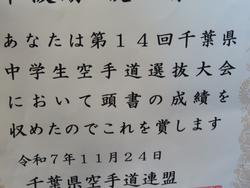 あなたは第１４回千葉県
中学生空手道選抜大会
において頭書の成績を
収めたのでこれを賞します
令和７年１１月２４日
千葉県空手道連盟